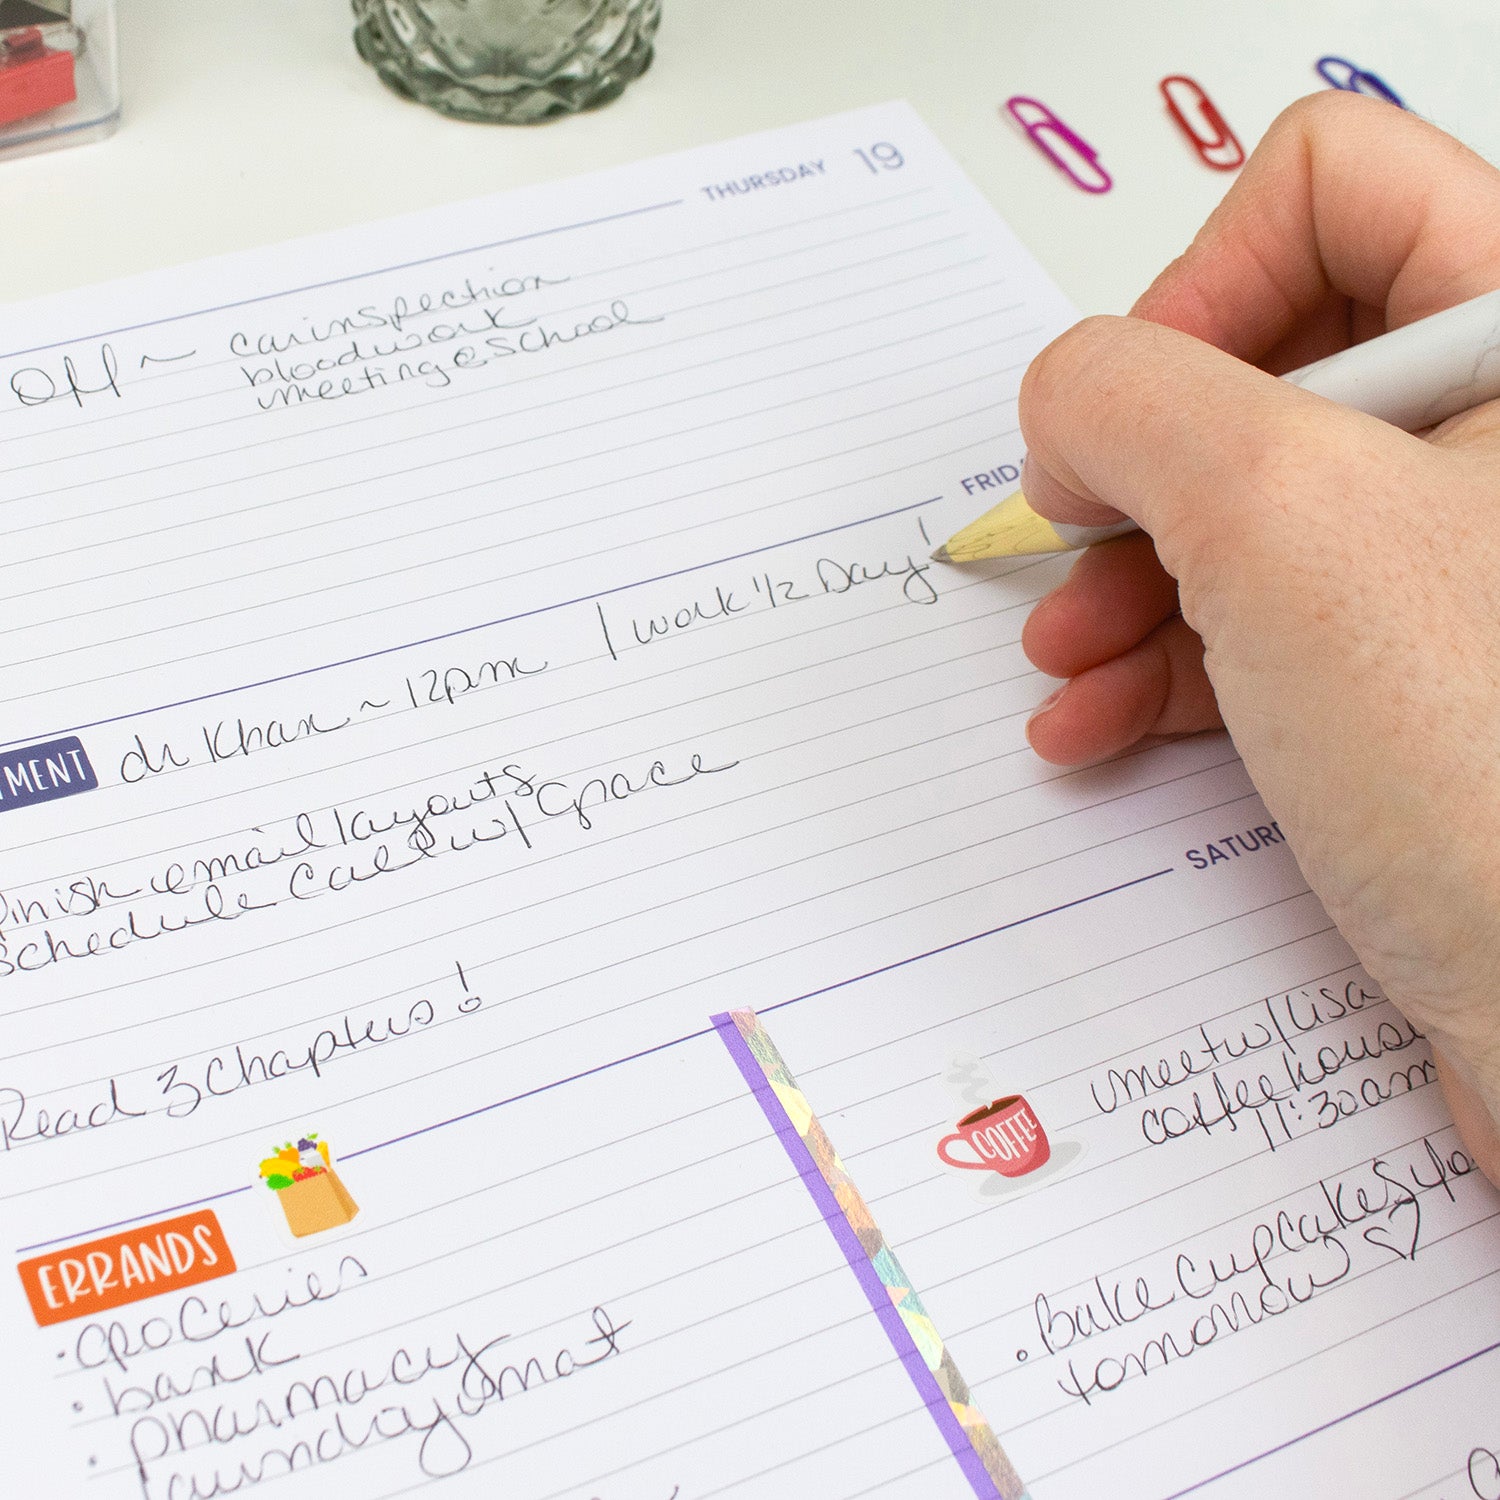 THURSDAY 19
Off ~ car inspection
bloodwork
meeting @ School
FRID
MENT dr Khan ~ 12pm / work 1/2 Day!
finish email layouts
schedule call w/ Grace
Read 3 Chapters!
SATUR
ERRANDS
• groceries
• bank
• pharmacy
laundry mat
COFFEE
meet w/ Lisa
coffee hous
11:30am
• Bake Cupcakes 4
tomorrow ♡